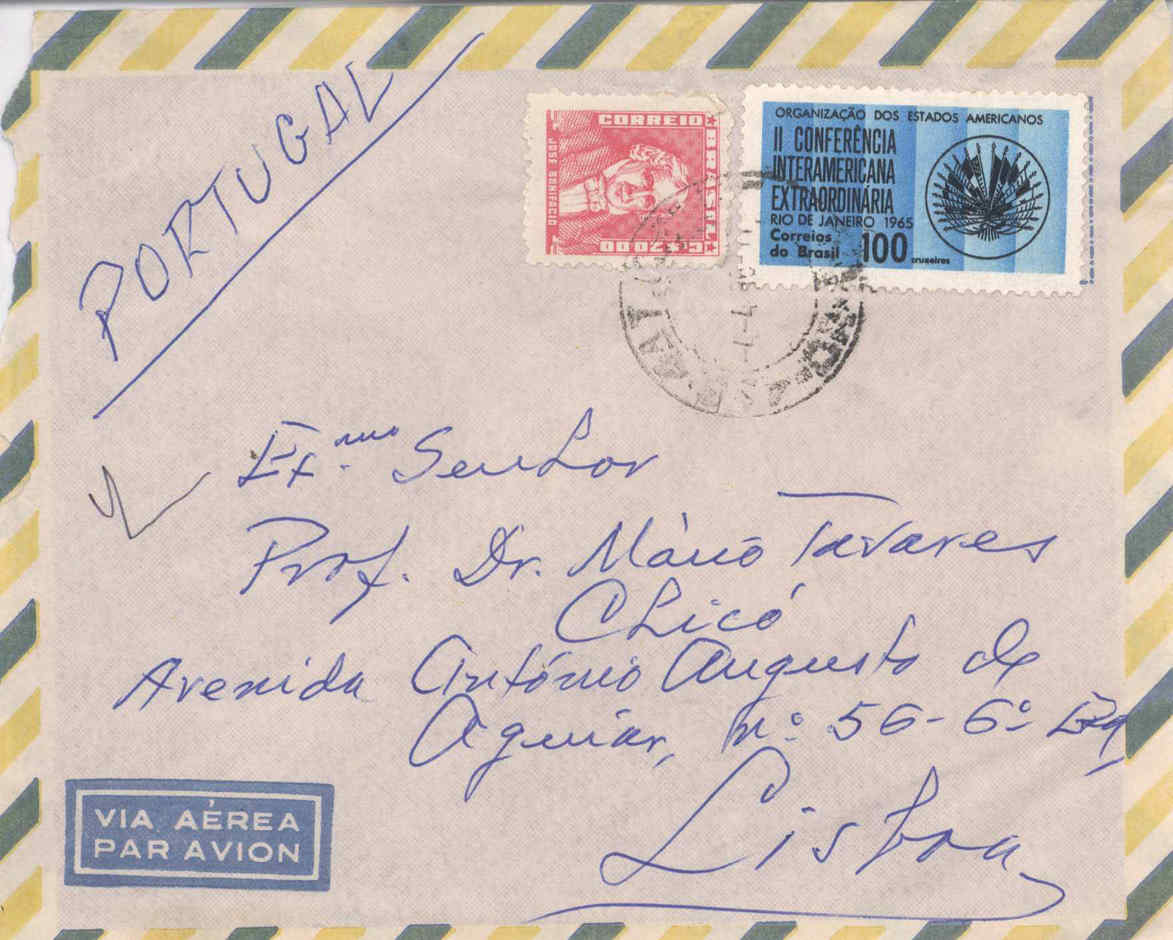 PORTUGAL
CORREIO
BRASIL
JOSÉ BONIFACIO
CR$20,00
ORGANIZAÇÃO DOS ESTADOS AMERICANOS
II CONFERÊNCIA
INTERAMERICANA
EXTRAORDINÁRIA
RIO DE JANEIRO 1965
Correios
do Brasil 100 cruzeiros
Ex.mo Senhor
Prof. Dr. Mário Tavares
Chicó
Avenida António Augusto de
Aguiar, nº 56-6º Esq
Lisboa
VIA AÉREA
PAR AVION